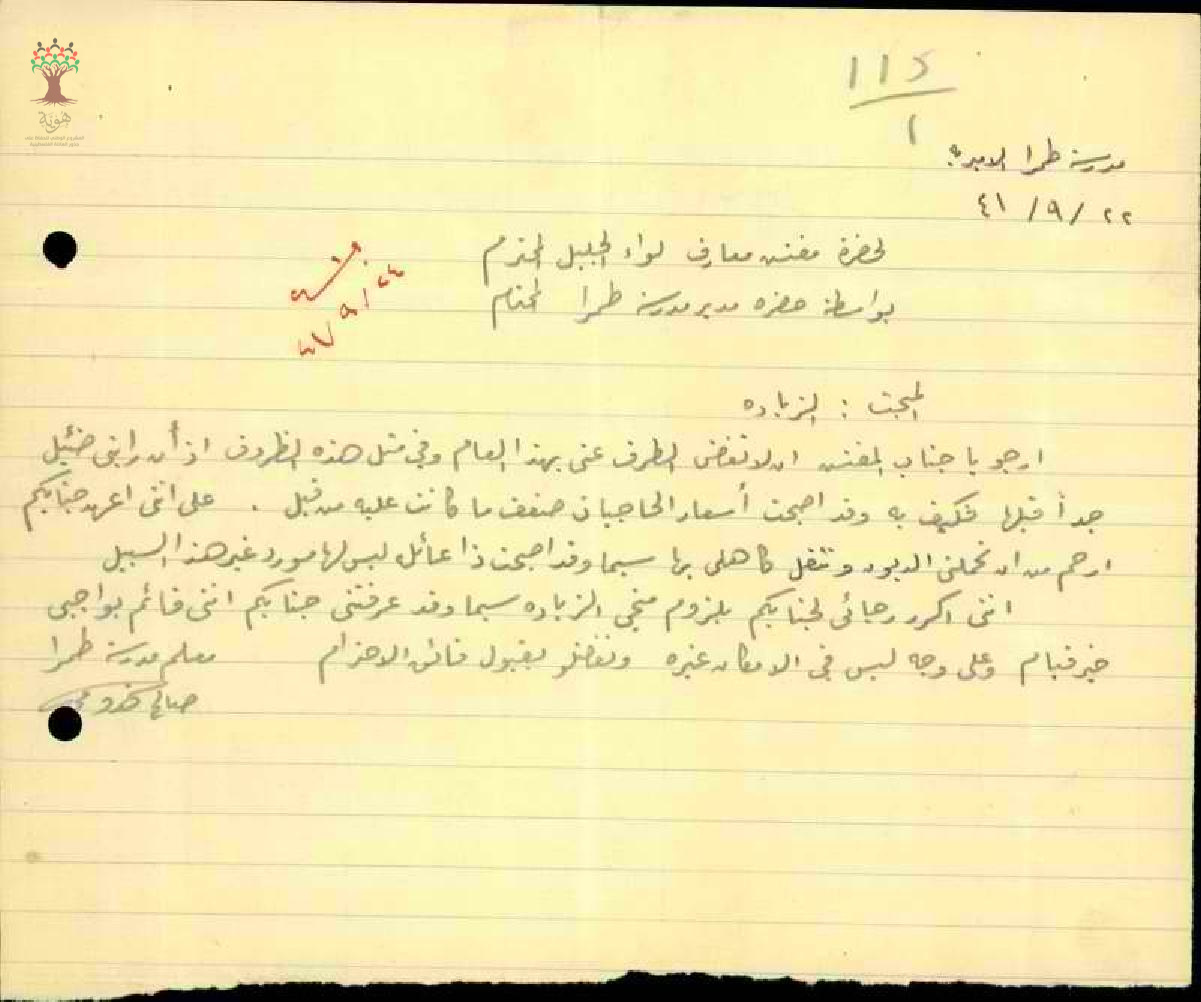 هوية
115
1
مدرسة طمرا الاميرية
٢٢ /٩/ ٤١
لحضرة مفتش معارف لواء الجليل المحترم
بواسطة حضره مدير مدرسة طمرا المحترم
٢٤ /٩/ ٤١
المبحث : الزياده
ارجو يا جناب المفتش ان لا تغض الطرف عني بهذا العام وفي مثل هذه الظروف اذ أن راتبي ضئيل
جداً قبلها فكيف به وقد اصبحت أسعار الحاجيات ضعف ما كانت عليه من قبل . على انني اعهد جنابكم
ارحم من ان تحملني الديون وتثقل كاهلي بها سيما وقد اصبحت ذا عائله ليس لها مورد غير هذا السبيل
انني اكرر رجائي لجنابكم بلزوم منحي الزياده سيما وقد عرفتني جنابكم انني قائم بواجبي
خير قيام وعلى وجه ليس في الامكان غيره وتفضلو بقبول فائق الاحترام معلم مدرسة طمرا
صالح